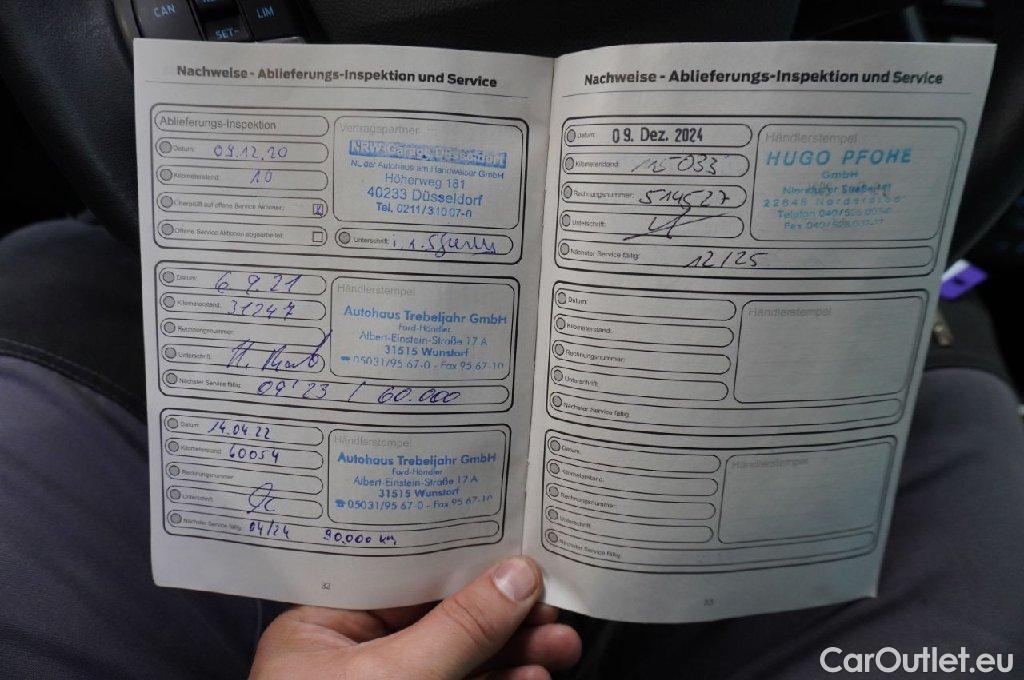 CAN
LIM
SET-
Nachweise - Ablieferungs-Inspektion und Service
Ablieferungs-Inspektion
Datum: 09.12.20
Kilometerstand: 10
Überprüft auf offene Service Aktionen:
Offene Service Aktionen abgearbeitet:
Vertragspartner
NRW-Garage Düsseldorf
NL der Autohaus am Handweiser GmbH
Höherweg 181
40233 Düsseldorf
Tel. 0211/31007-0
Unterschrift:
Datum: 6.9.21
Kilometerstand: 31247
Rechnungsnummer:
Unterschrift:
Nächster Service fällig: 09'23 / 60.000
Händlerstempel
Autohaus Trebeljahr GmbH
Ford-Händler
Albert-Einstein-Straße 17 A
31515 Wunstorf
☎ 05031/95 67-0 - Fax 95 67-10
Datum: 14.04.22
Kilometerstand: 60054
Rechnungsnummer:
Unterschrift:
Nächster Service fällig: 04/24 90.000 km
Händlerstempel
Autohaus Trebeljahr GmbH
Ford-Händler
Albert-Einstein-Straße 17 A
31515 Wunstorf
☎ 05031/95 67-0 - Fax 95 67-10
32
Nachweise - Ablieferungs-Inspektion und Service
Datum: 09. Dez. 2024
Kilometerstand:
Rechnungsnummer: 514527
Unterschrift:
Nächster Service fällig: 12/25
Händlerstempel
HUGO PFOHE
GmbH
Datum:
Kilometerstand:
Rechnungsnummer:
Unterschrift:
Nächster Service fällig:
Händlerstempel
Datum:
Kilometerstand:
Rechnungsnummer:
Unterschrift:
Nächster Service fällig:
Händlerstempel
33
CarOutlet.eu